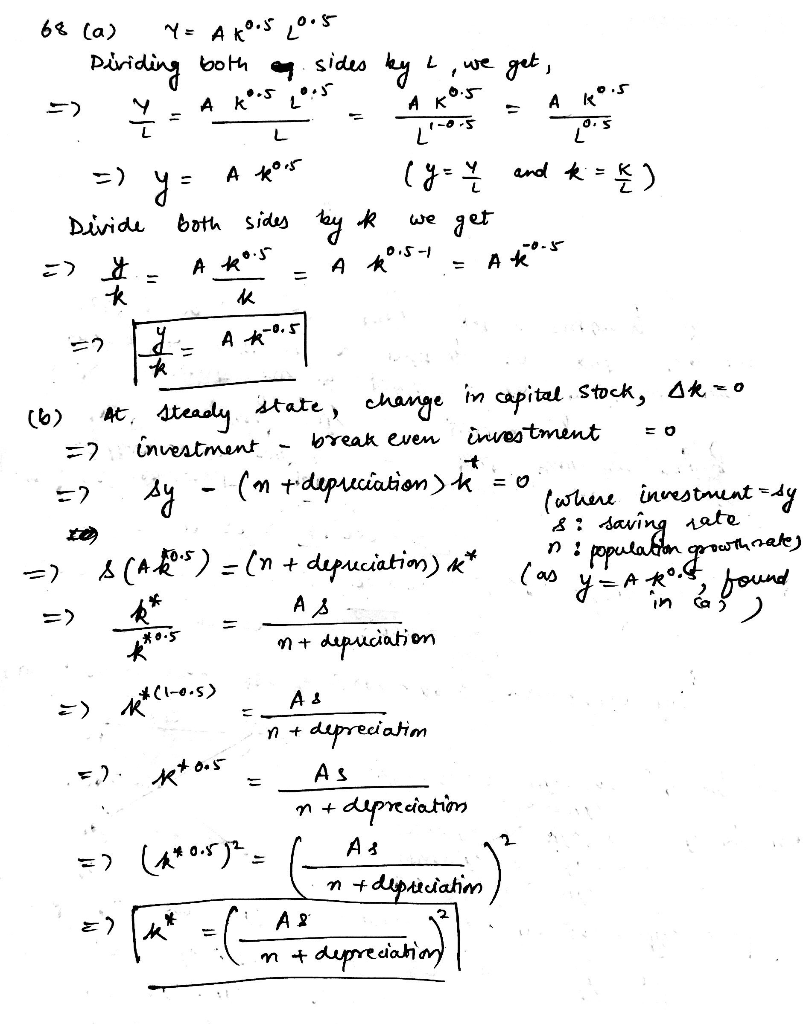 68 (a) Y = A K^0.5 L^0.5
Dividing both sides by L, we get,
=> Y/L = A K^0.5 L^0.5 / L = A K^0.5 / L^1-0.5 = A K^0.5 / L^0.5
=> y = A k^0.5 (y = Y/L and k = K/L)
Divide both sides by k we get
=> y/k = A k^0.5 / k = A k^0.5-1 = A k^-0.5
=> y/k = A k^-0.5
(b) At steady state, change in capital stock, Δk = 0
=> investment - break even investment = 0
=> sy - (n + depreciation) k* = 0 (where investment = sy
s : saving rate
n : population growth rate)
=> s(A k^*0.5) = (n + depreciation) k* (as y = A k^0.5, found
in (a))
=> k* / k^*0.5 = A s / n + depreciation
=> k^*(1-0.5) = A s / n + depreciation
=> k^*0.5 = A s / n + depreciation
=> (k^*0.5)^2 = (A s / n + depreciation)^2
=> k* = (A s / n + depreciation)^2